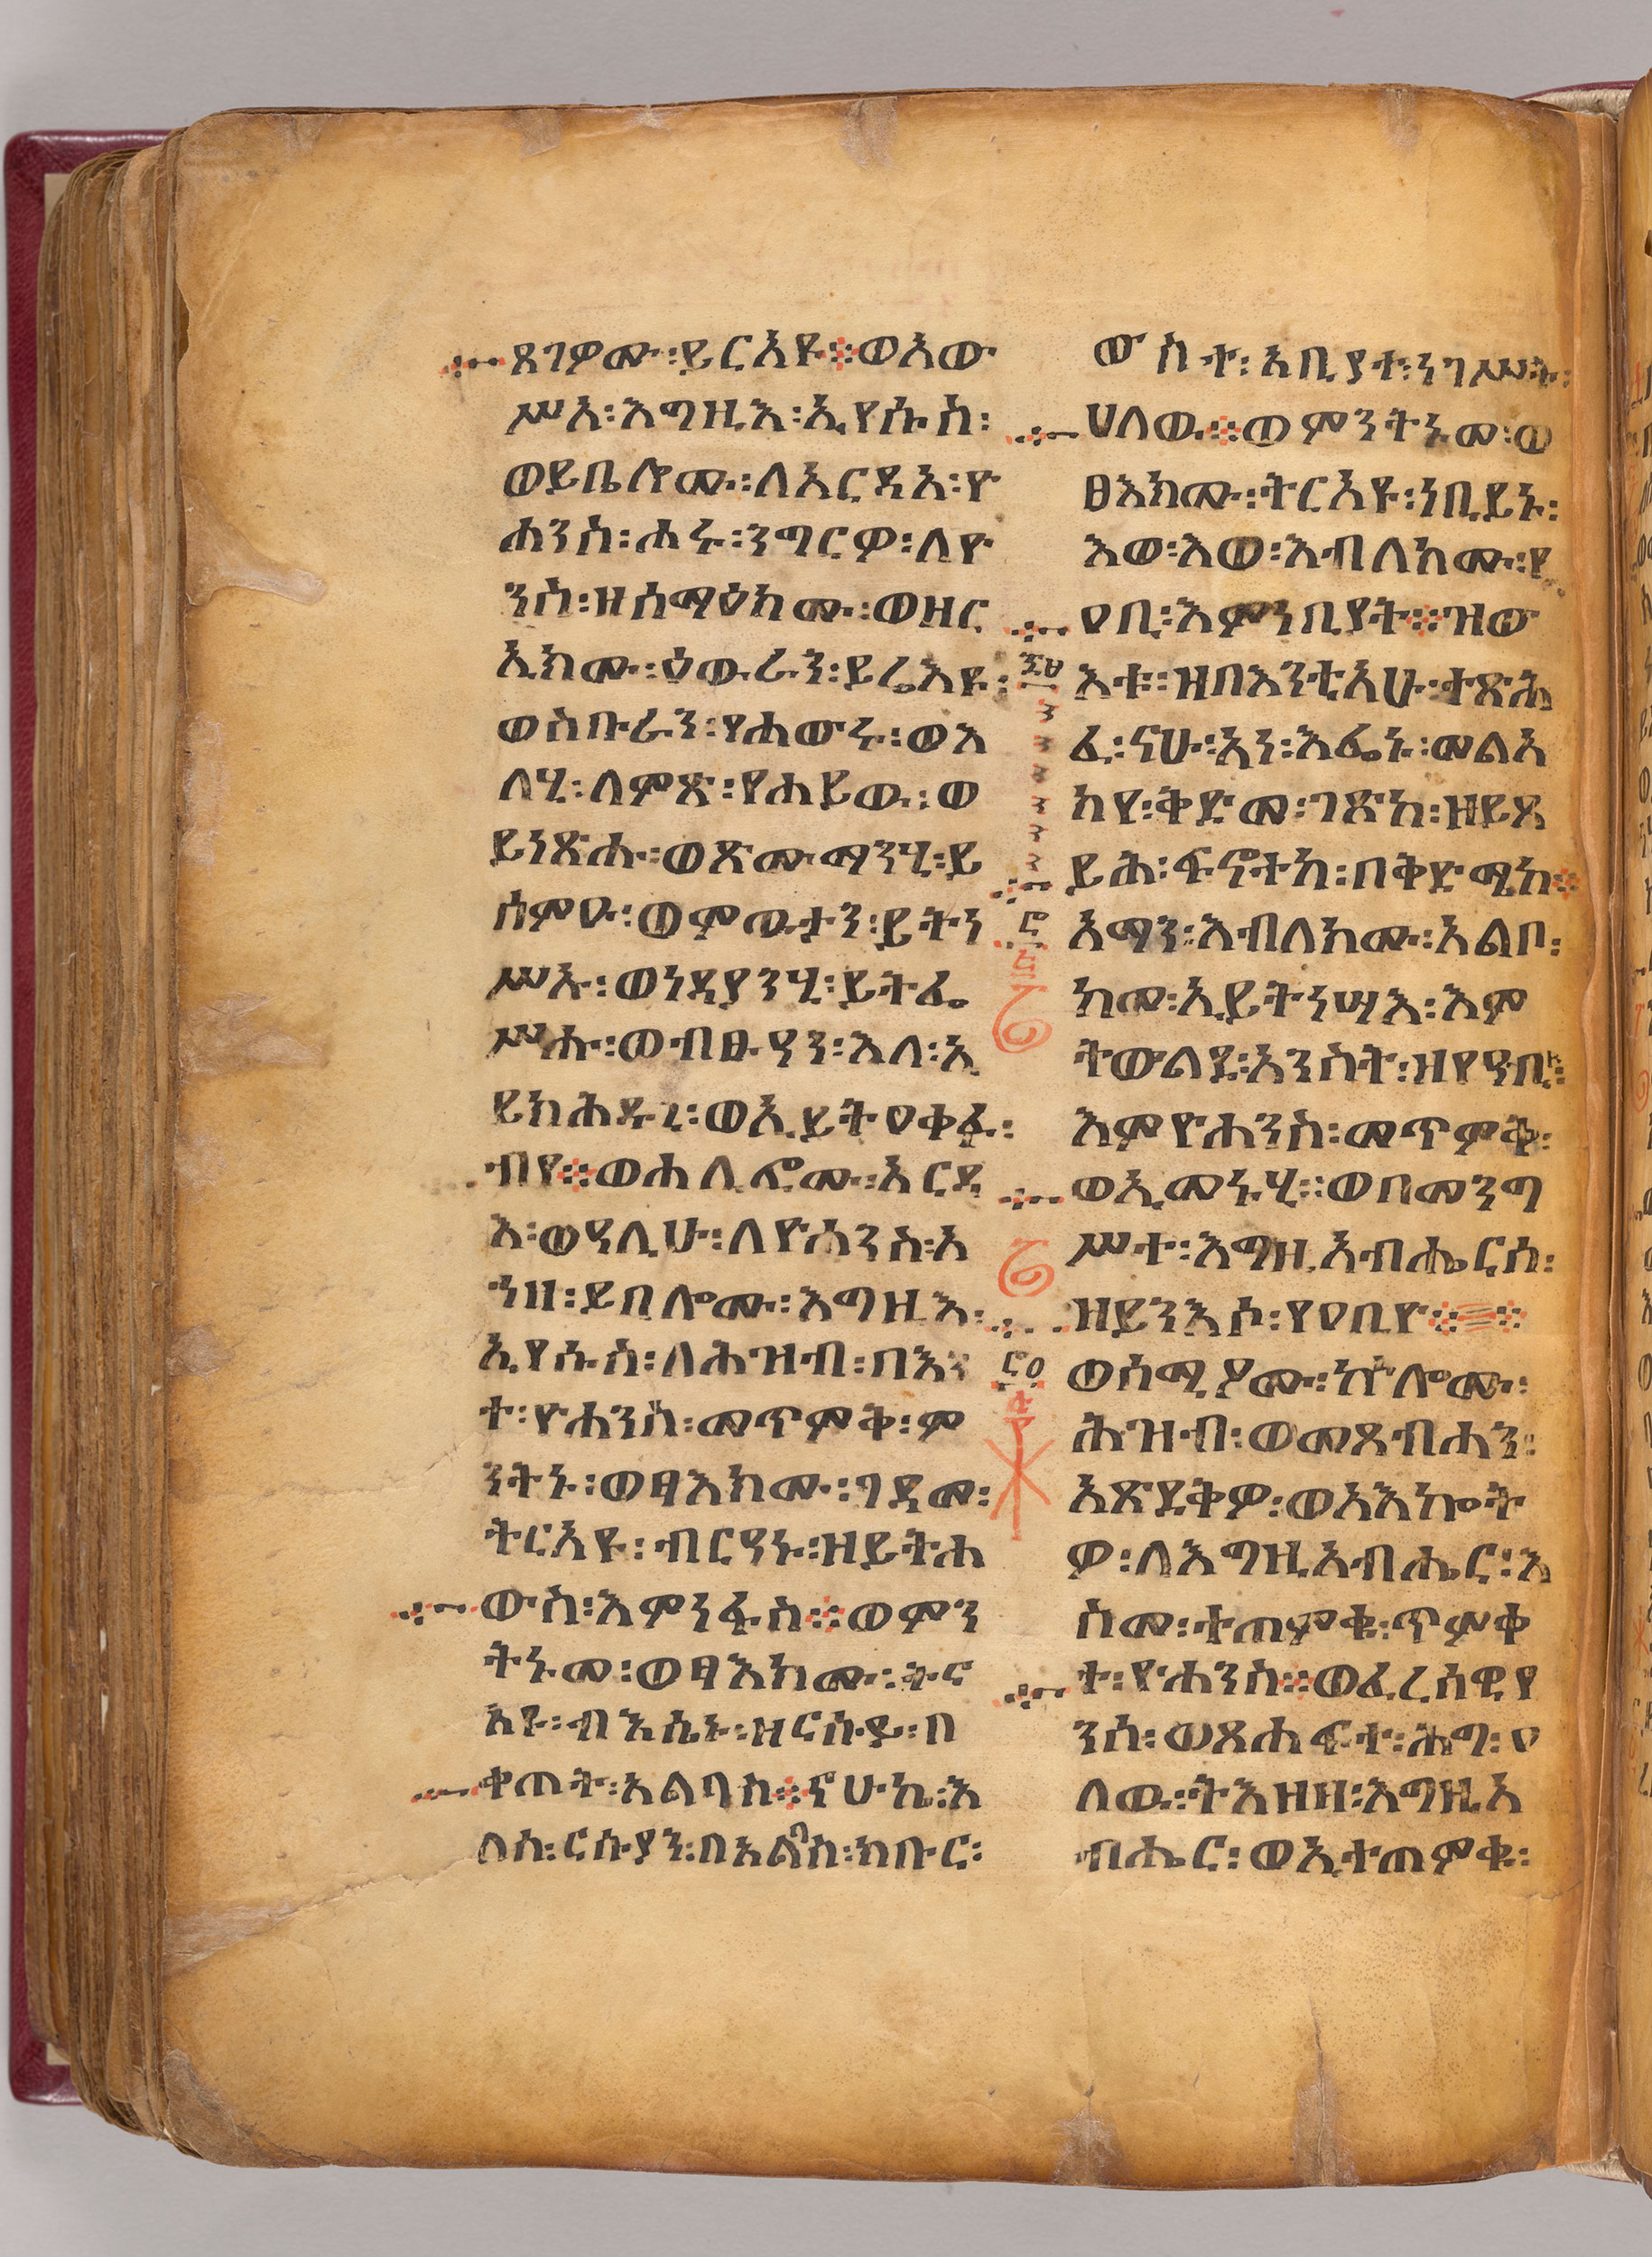 ጸገዎሙ፡ይርአዩ፨ወአው
ሥአ፡እግዚእ፡ኢየሱስ፡
ወይቤሎሙ፡ለአርዳአ፡ዮ
ሐንስ፡ሐሩ፡ንግርዎ፡ለዮ
ንስ፡ዘሰማዕክሙ፡ወዘር
ኢክሙ፡ዕውራን፡ይሬእዩ፡
ወስቡራን፡የሐውሩ፡ወእ
ለሂ፡ለምጽ፡የሐይዉ፡ወ
ይነጽሑ፡ወጽሙማንሂ፡ይ
ሰምዑ፡ወምዉታን፡ይትነ
ሥኡ፡ወነዳያንሂ፡ይትፌ
ሥሑ፡ወብፁዓን፡እለ፡ኢ
ይክሕዱኒ፡ወኢይትዐቀፉ፡
ብየ፨ወሐሊፎሙ፡አርዳ
እ፡ወዓሊሁ፡ለዮሐንስ፡አ
ኀዘ፡ይበሎሙ፡እግዚእ፡
ኢየሱስ፡ለሕዝብ፡በእን
ተ፡ዮሐንስ፡መጥምቅ፡ም
ንትኑ፡ወፃእክሙ፡ገዳመ፡
ትርአዩ፡ብርዓኑ፡ዘይትሐ
ወስ፡እምነፋስ፨ወምን
ትኑመ፡ወፃእክሙ፡ትር
አዩ፡ብእሴኑ፡ዘርሱይ፡በ
ቀጠት፡አልባስ፨ናሁኬ፡እ
ለሰ፡ርሱያን፡በአልባስ፡ክቡር፡
ውስተ፡አቢያተ፡ነገሥት፡
ሀለዉ፨ወምንትኑመ፡ወ
ፀእክሙ፡ትርአዩ፡ነቢይኑ፡
እወ፡እወ፡እብለክሙ፡የ
ዐቢ፡እምነቢያት፨ዝው
እቱ፡ዘበእንቲአሁ፡ተጽሕ
ፈ፡ናሁ፡አነ፡እፌኑ፡መልአ
ከየ፡ቅድመ፡ገጽከ፡ዘይጸ
ይሕ፡ፍኖተከ፡በቅድሜከ፨
አማን፡እብለክሙ፡አልቦ፡
ከመ፡ኢይትነሣእ፡እም
ትውልደ፡አንስት፡ዘየዓቢ፡
እምዮሐንስ፡መጥምቅ፡
ወኢመኑሂ፡ወበመንግ
ሥተ፡እግዚአብሔርሰ፡
ዘይንእሶ፡የዐቢዮ፨፨
ወሰሚዖሙ፡ኵሎሙ፡
ሕዝብ፡ወመጸብሐን፡
አጽደቅዎ፡ወአእኰት
ዎ፡ለእግዚአብሔር፡እ
ስመ፡ተጠምቁ፡ጥምቀ
ተ፡ዮሐንስ፨ወፈሪሳዊያ
ንሰ፡ወጸሐፍተ፡ሕግ፡ዐ
ለዉ፡ትእዛዘ፡እግዚአ
ብሔር፡ወኢተጠምቁ፡